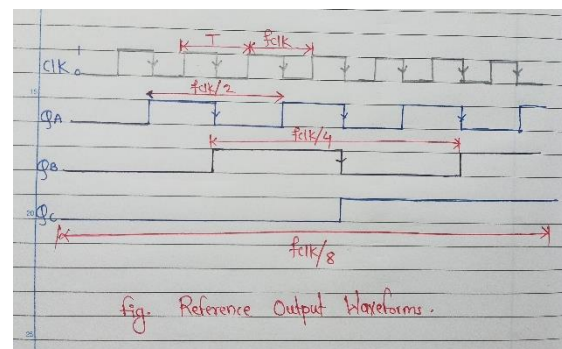 T fclk
CLK 1
0
15
fclk/2
QA
fclk/4
QB
20 QC
fclk/8
fig. Reference Output Waveforms.
25